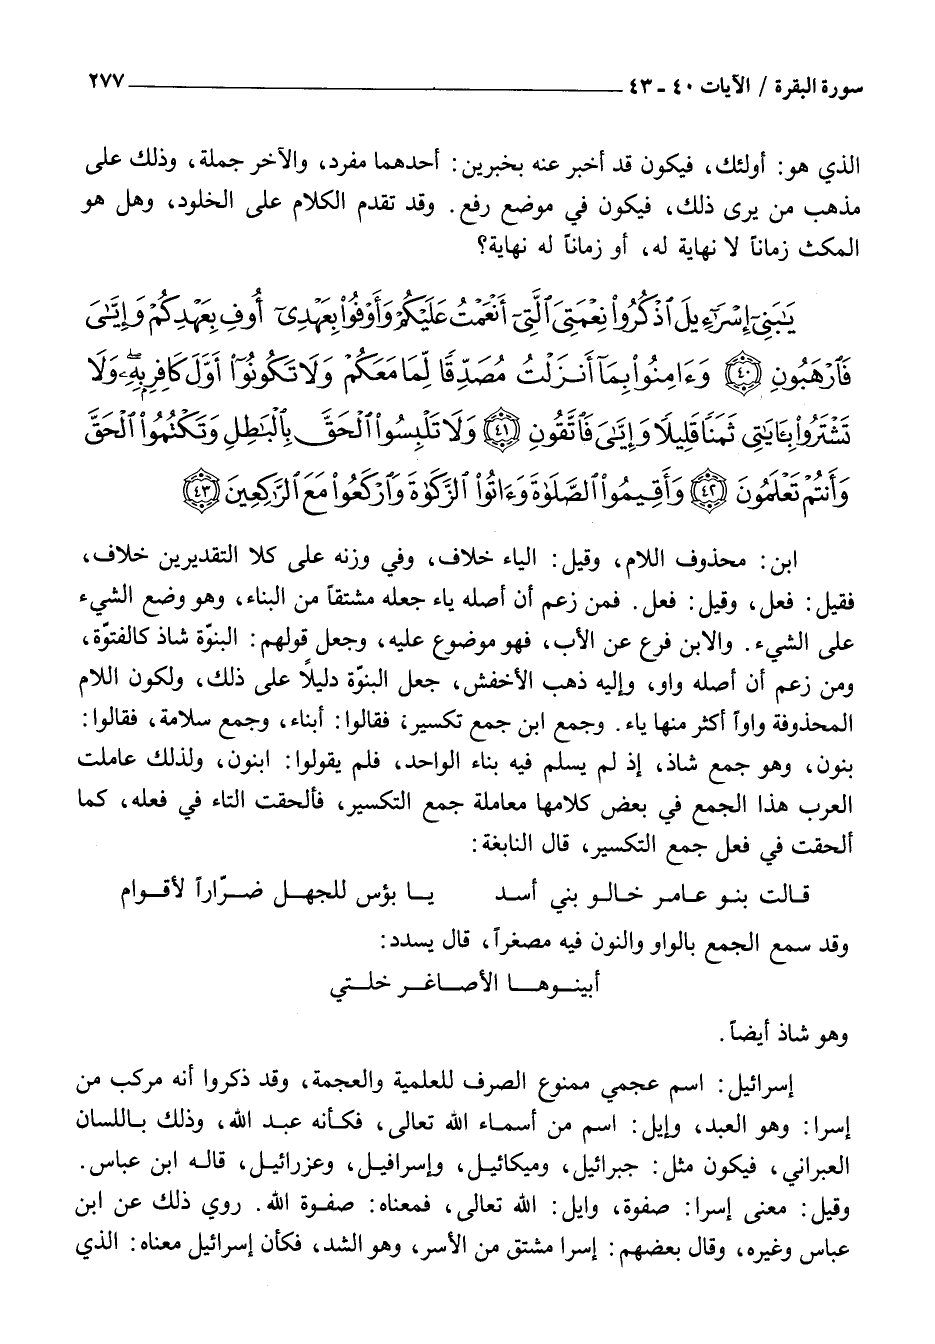 سورة البقرة / الآيات ٤٠ - ٤٣ ٢٧٧
الذي هو: أولئك، فيكون قد أخبر عنه بخبرين: أحدهما مفرد، والآخر جملة، وذلك على
مذهب من يرى ذلك، فيكون في موضع رفع. وقد تقدم الكلام على الخلود، وهل هو
المكث زماناً لا نهاية له، أو زماناً له نهاية؟
يَٰبَنِىٓ إِسْرَٰٓءِيلَ ٱذْكُرُوا۟ نِعْمَتِىَ ٱلَّتِىٓ أَنْعَمْتُ عَلَيْكُمْ وَأَوْفُوا۟ بِعَهْدِىٓ أُوفِ بِعَهْدِكُمْ وَإِيَّٰىَ
فَٱرْهَبُونِ ٤٠ وَءَامِنُوا۟ بِمَآ أَنزَلْتُ مُصَدِّقًا لِّمَا مَعَكُمْ وَلَا تَكُونُوٓا۟ أَوَّلَ كَافِرٍۭ بِهِۦ ۖ وَلَا
تَشْتَرُوا۟ بِـَٔايَٰتِى ثَمَنًا قَلِيلًا وَإِيَّٰىَ فَٱتَّقُونِ ٤١ وَلَا تَلْبِسُوا۟ ٱلْحَقَّ بِٱلْبَٰطِلِ وَتَكْتُمُوا۟ ٱلْحَقَّ
وَأَنتُمْ تَعْلَمُونَ ٤٢ وَأَقِيمُوا۟ ٱلصَّلَوٰةَ وَءَاتُوا۟ ٱلزَّكَوٰةَ وَٱرْكَعُوا۟ مَعَ ٱلرَّٰكِعِينَ ٤٣
ابن: محذوف اللام، وقيل: الياء خلاف، وفي وزنه على كلا التقديرين خلاف،
فقيل: فعل، وقيل: فعل. فمن زعم أن أصله ياء جعله مشتقاً من البناء، وهو وضع الشيء
على الشيء. والابن فرع عن الأب، فهو موضوع عليه، وجعل قولهم: البنوّة شاذ كالفتوّة،
ومن زعم أن أصله واو، وإليه ذهب الأخفش، جعل البنوّة دليلاً على ذلك، ولكون اللام
المحذوفة واواً أكثر منها ياء. وجمع ابن جمع تكسير، فقالوا: أبناء، وجمع سلامة، فقالوا:
بنون، وهو جمع شاذ، إذ لم يسلم فيه بناء الواحد، فلم يقولوا: ابنون، ولذلك عاملت
العرب هذا الجمع في بعض كلامها معاملة جمع التكسير، فألحقت التاء في فعله، كما
ألحقت في فعل جمع التكسير، قال النابغة:
قالت بنو عامر خالو بني أسد يا بؤس للجهل ضرّاراً لأقوام
وقد سمع الجمع بالواو والنون فيه مصغراً، قال يسدد:
أبينوها الأصاغر خلتي
وهو شاذ أيضاً.
إسرائيل: اسم عجمي ممنوع الصرف للعلمية والعجمة، وقد ذكروا أنه مركب من
إسرا: وهو العبد، وإيل: اسم من أسماء الله تعالى، فكأنه عبد الله، وذلك باللسان
العبراني، فيكون مثل: جبرائيل، وميكائيل، وإسرافيل، وعزرائيل، قاله ابن عباس.
وقيل: معنى إسرا: صفوة، وايل: الله تعالى، فمعناه: صفوة الله. روي ذلك عن ابن
عباس وغيره، وقال بعضهم: إسرا مشتق من الأسر، وهو الشد، فكأن إسرائيل معناه: الذي